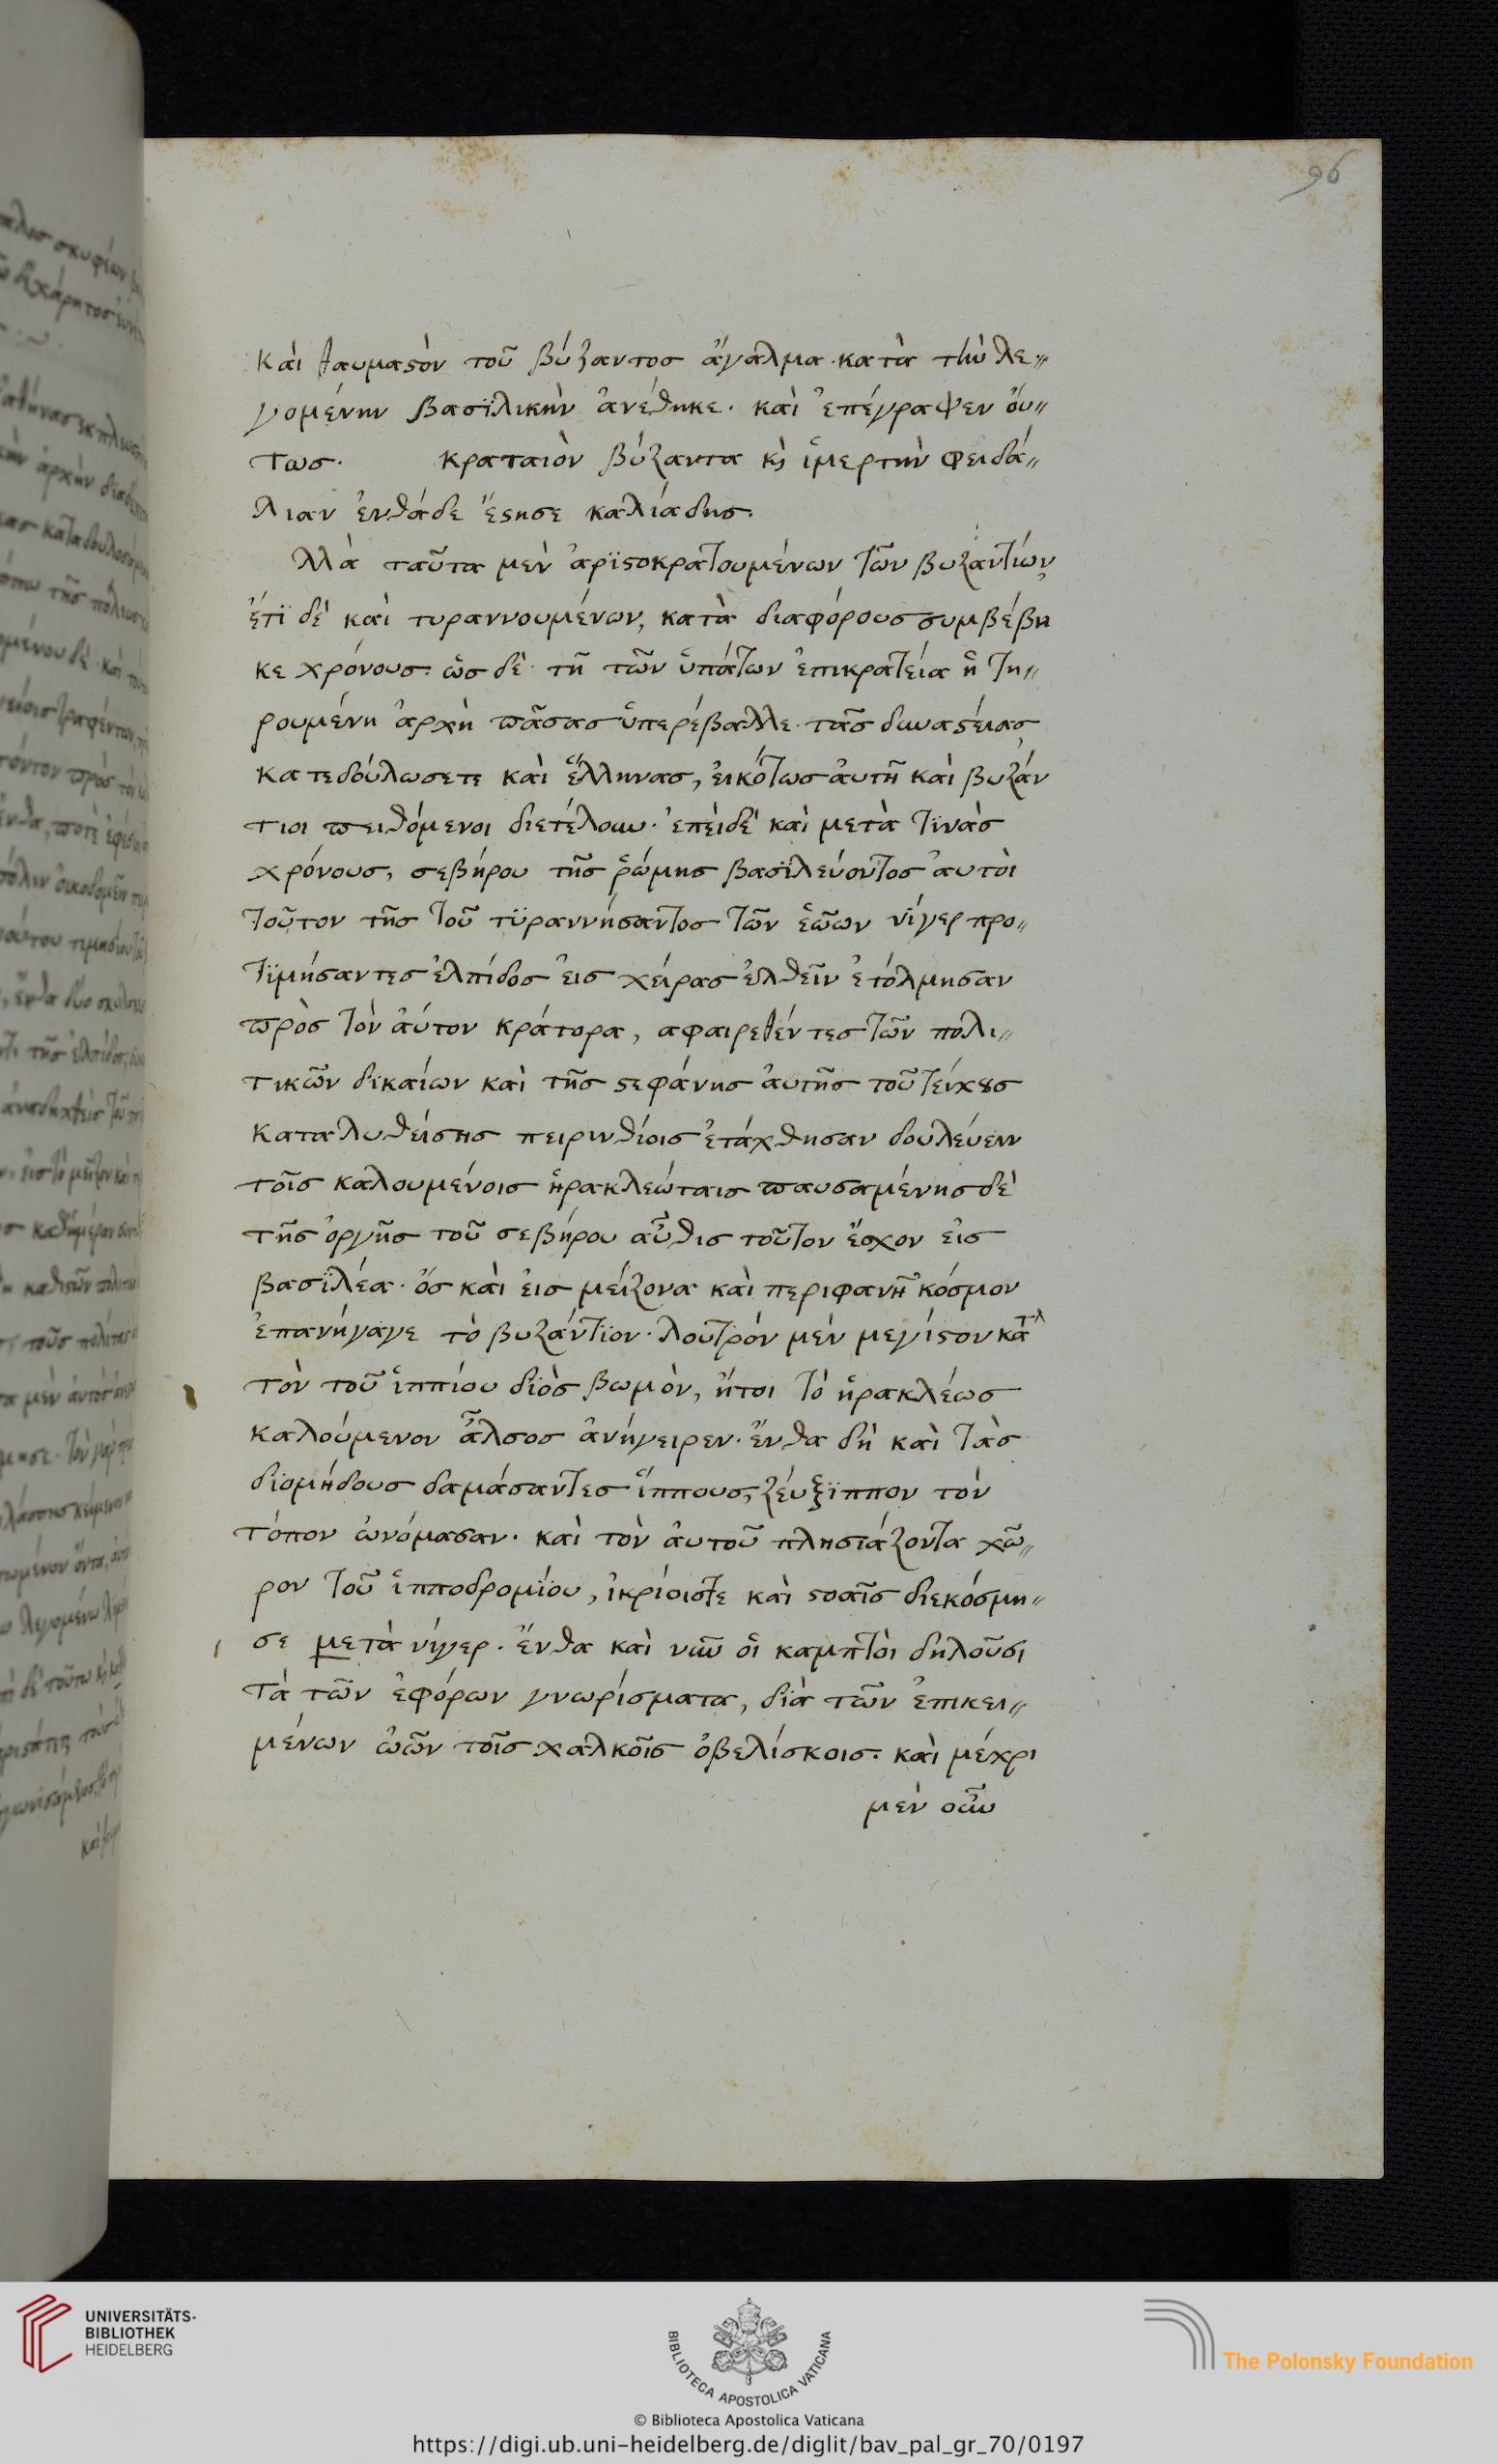 96
καὶ θαυμαϛὸν τοῦ βύζαντοσ ἄγαλμα· κατὰ τὴν λε〃
γομένην βασϊλικὴν ἀνέθηκε· καὶ ἐπέγραψεν ὅυ〃
τωσ· κραταιὸν βύζαντα κὶ ἱμερτὴν φειδά〃
λιαν ἐνθάδε ἔϛησε καλιάδησ·
λλὰ ταῦτα μὲν ἀρϊϛοκρατουμένων τῶν βυζαντίων,
ἔτϊ δὲ καὶ τυραννουμένων, κατὰ διαφόρουσ συμβέβη
κε χρόνουσ· ὡσ δὲ τῆ τῶν ὑπάτων ἐπικρατεία ἡ τη〃
ρουμένη ἀρχὴ πᾶσασ ὑπερέβαλλε τὰσ δυναϛείασ
κατεδούλωσετε καὶ ἕλληνασ, ἐικότωσ ἀυτῆ καὶ βυζάν
τιοι πειθόμενοι διετέλουν· ἐπεὶδὲ καὶ μετὰ τϊνὰσ
χρόνουσ, σεβήρου τῆσ ῥώμησ βασϊλεύοντοσ ἀυτὸι
τοῦτον τῆσ τοῦ τϋραννήσαντοσ τῶν ἑῶων νίγερ προ〃
τϊμήσαντεσ ἐλπίδοσ ἐισ χεῖρασ ἐλθεῖν ἐτόλμησαν
πρὸσ τὸν ἀύτον κράτορα, αφαιρεθέντεσ τῶν πολι〃
τικῶν δικαίων καὶ τῆσ ϛεφάνησ ἀυτῆσ τοῦ τείχȣσ
καταλυθείσησ πειρινθίοισ ἐτάχθησαν δουλεύειν
τοῖσ καλουμένοισ ἡρακλεώταισ παυσαμένησ δὲ
τῆσ ὀργῆσ τοῦ σεβήρου αὖθισ τοῦτον ἔσχον εἰσ
βασϊλέα· ὅσ καὶ ἐισ μείζονα καὶ περιφανῆ κόσμον
ἐπανήγαγε τὸ βυζάντϊον· λουτρόν μὲν μεγίϛον κατ
τὸν τοῦ ἱππίου διὸσ βωμὸν, ἤτοι τὸ ἡρακλέωσ
καλούμενον ἄλσοσ ἀνήγειρεν· ἔνθα δὴ καὶ τὰσ
διομήδουσ δαμάσαντεσ ἵππουσ, ζέυξϊππον τὸν
τόπον ὠνόμασαν· καὶ τὸν ἀυτοῦ πλησιάζοντα χῶ〃
ρον τοῦ ἱπποδρομίου, ἰκρίοιστε καὶ ϛοαῖσ διεκόσμη〃
σε μετὰ νίγερ· ἔνθα καὶ νῦν ὁι καμπτὸι δηλοῦσι
τὰ τῶν ἐφόρων γνωρίσματα, διὰ τῶν ἐπικει〃
μένων ὠῶν τοῖσ χαλκοῖσ ὀβελίσκοισ· καὶ μέχρι
μὲν οὖν
UNIVERSITÄTS-
BIBLIOTHEK
HEIDELBERG
BIBLIOTECA APOSTOLICA VATICANA
The Polonsky Foundation
© Biblioteca Apostolica Vaticana
https://digi.ub.uni-heidelberg.de/diglit/bav_pal_gr_70/0197